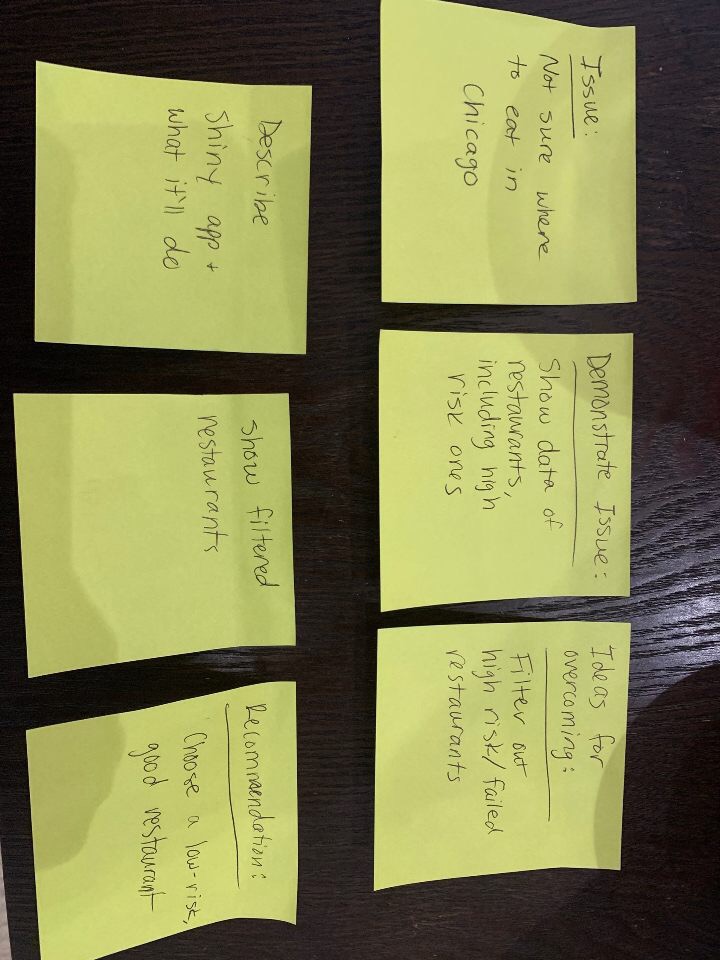 Issue:
Not sure where
to eat in
Chicago
Demonstrate Issue:
Show data of
restaurants,
including high
risk ones
Ideas for
overcoming:
Filter out
high risk/failed
restaurants
Describe
Shiny app +
what it'll do
show filtered
restaurants
Recommendation:
Choose a low-risk,
good restaurant